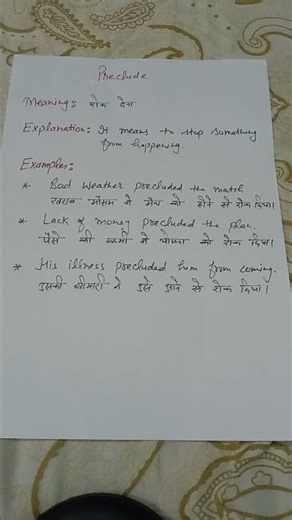 Preclude
Meaning: रोक देना
Explanation: It means to stop something
from happening.
Examples:
* Bad weather precluded the match
खराब मौसम ने मैच को होने से रोक दिया।
* Lack of money precluded the plan.
पैसे की कमी ने योजना को रोक दिया।
* His illness precluded him from coming.
उसकी बीमारी ने उसे आने से रोक दिया।